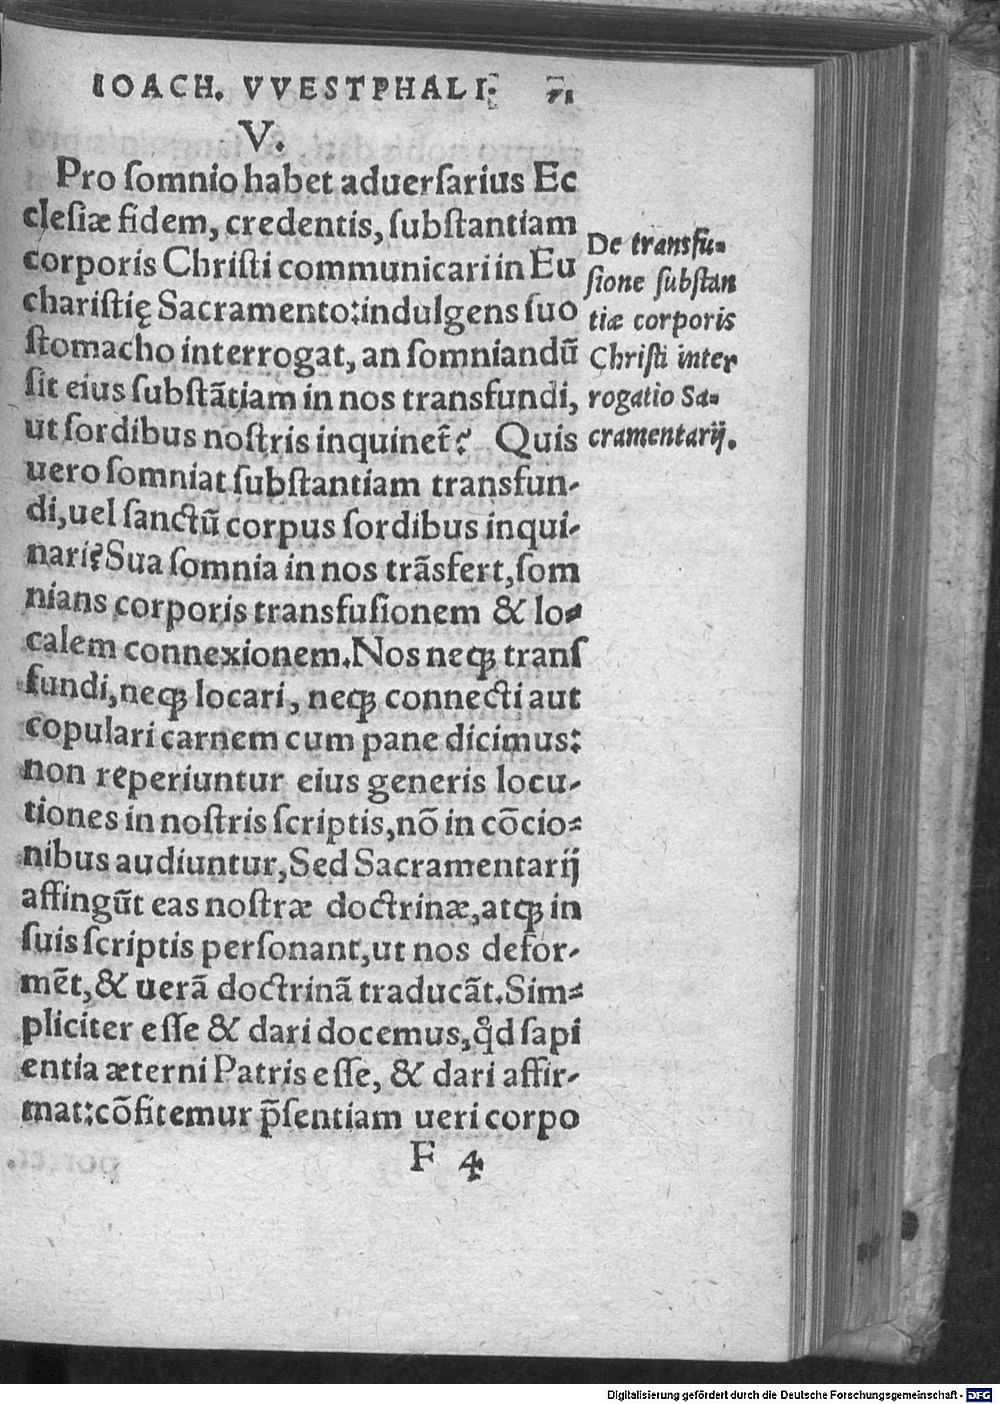 IOACH. VVESTPHALI. 71
V.
Pro ſomnio habet aduerſarius Ec
cleſiæ fidem, credentis, ſubſtantiam
corporis Chriſti communicari in Eu
chariſtię Sacramento: indulgens ſuo
ſtomacho interrogat, an ſomniandũ
ſit eius ſubſtãtiam in nos transfundi,
ut ſordibus noſtris inquinet̃? Quis
uero ſomniat ſubſtantiam transfun-
di, uel ſanctũ corpus ſordibus inqui-
nari? Sua ſomnia in nos trãsfert, ſom
nians corporis transfuſionem & lo-
calem connexionem. Nos neqꝫ tranſ
fundi, neqꝫ locari, neqꝫ connecti aut
copulari carnem cum pane dicimus:
non reperiuntur eius generis locu-
tiones in noſtris ſcriptis, nõ in cõcio-
nibus audiuntur, Sed Sacramentarij
affingũt eas noſtræ doctrinæ, atqꝫ in
ſuis ſcriptis perſonant, ut nos defor-
mẽt, & uerã doctrinã traducãt. Sim-
pliciter eſſe & dari docemus, qd̃ ſapi
entia æterni Patris eſſe, & dari affir-
mat: cõfitemur p̃ſentiam ueri corpo
F 4
De transfu-
ſione ſubſtan
tiæ corporis
Chriſti inter
rogatio Sa-
cramentarij.
Digitalisierung gefördert durch die Deutsche Forschungsgemeinschaft - DFG